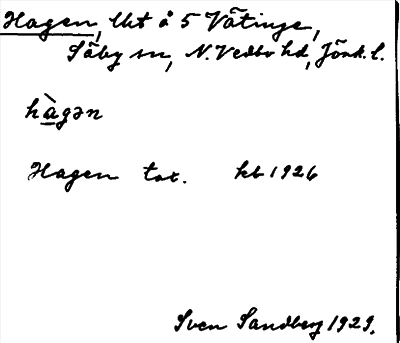 Hagen, lht å 5 Vätinge,
Säby sn, N. Vedbo hd, Jönk. l.
hàgən
Hagen tax. kb 1926
Sven Sandberg 1929.